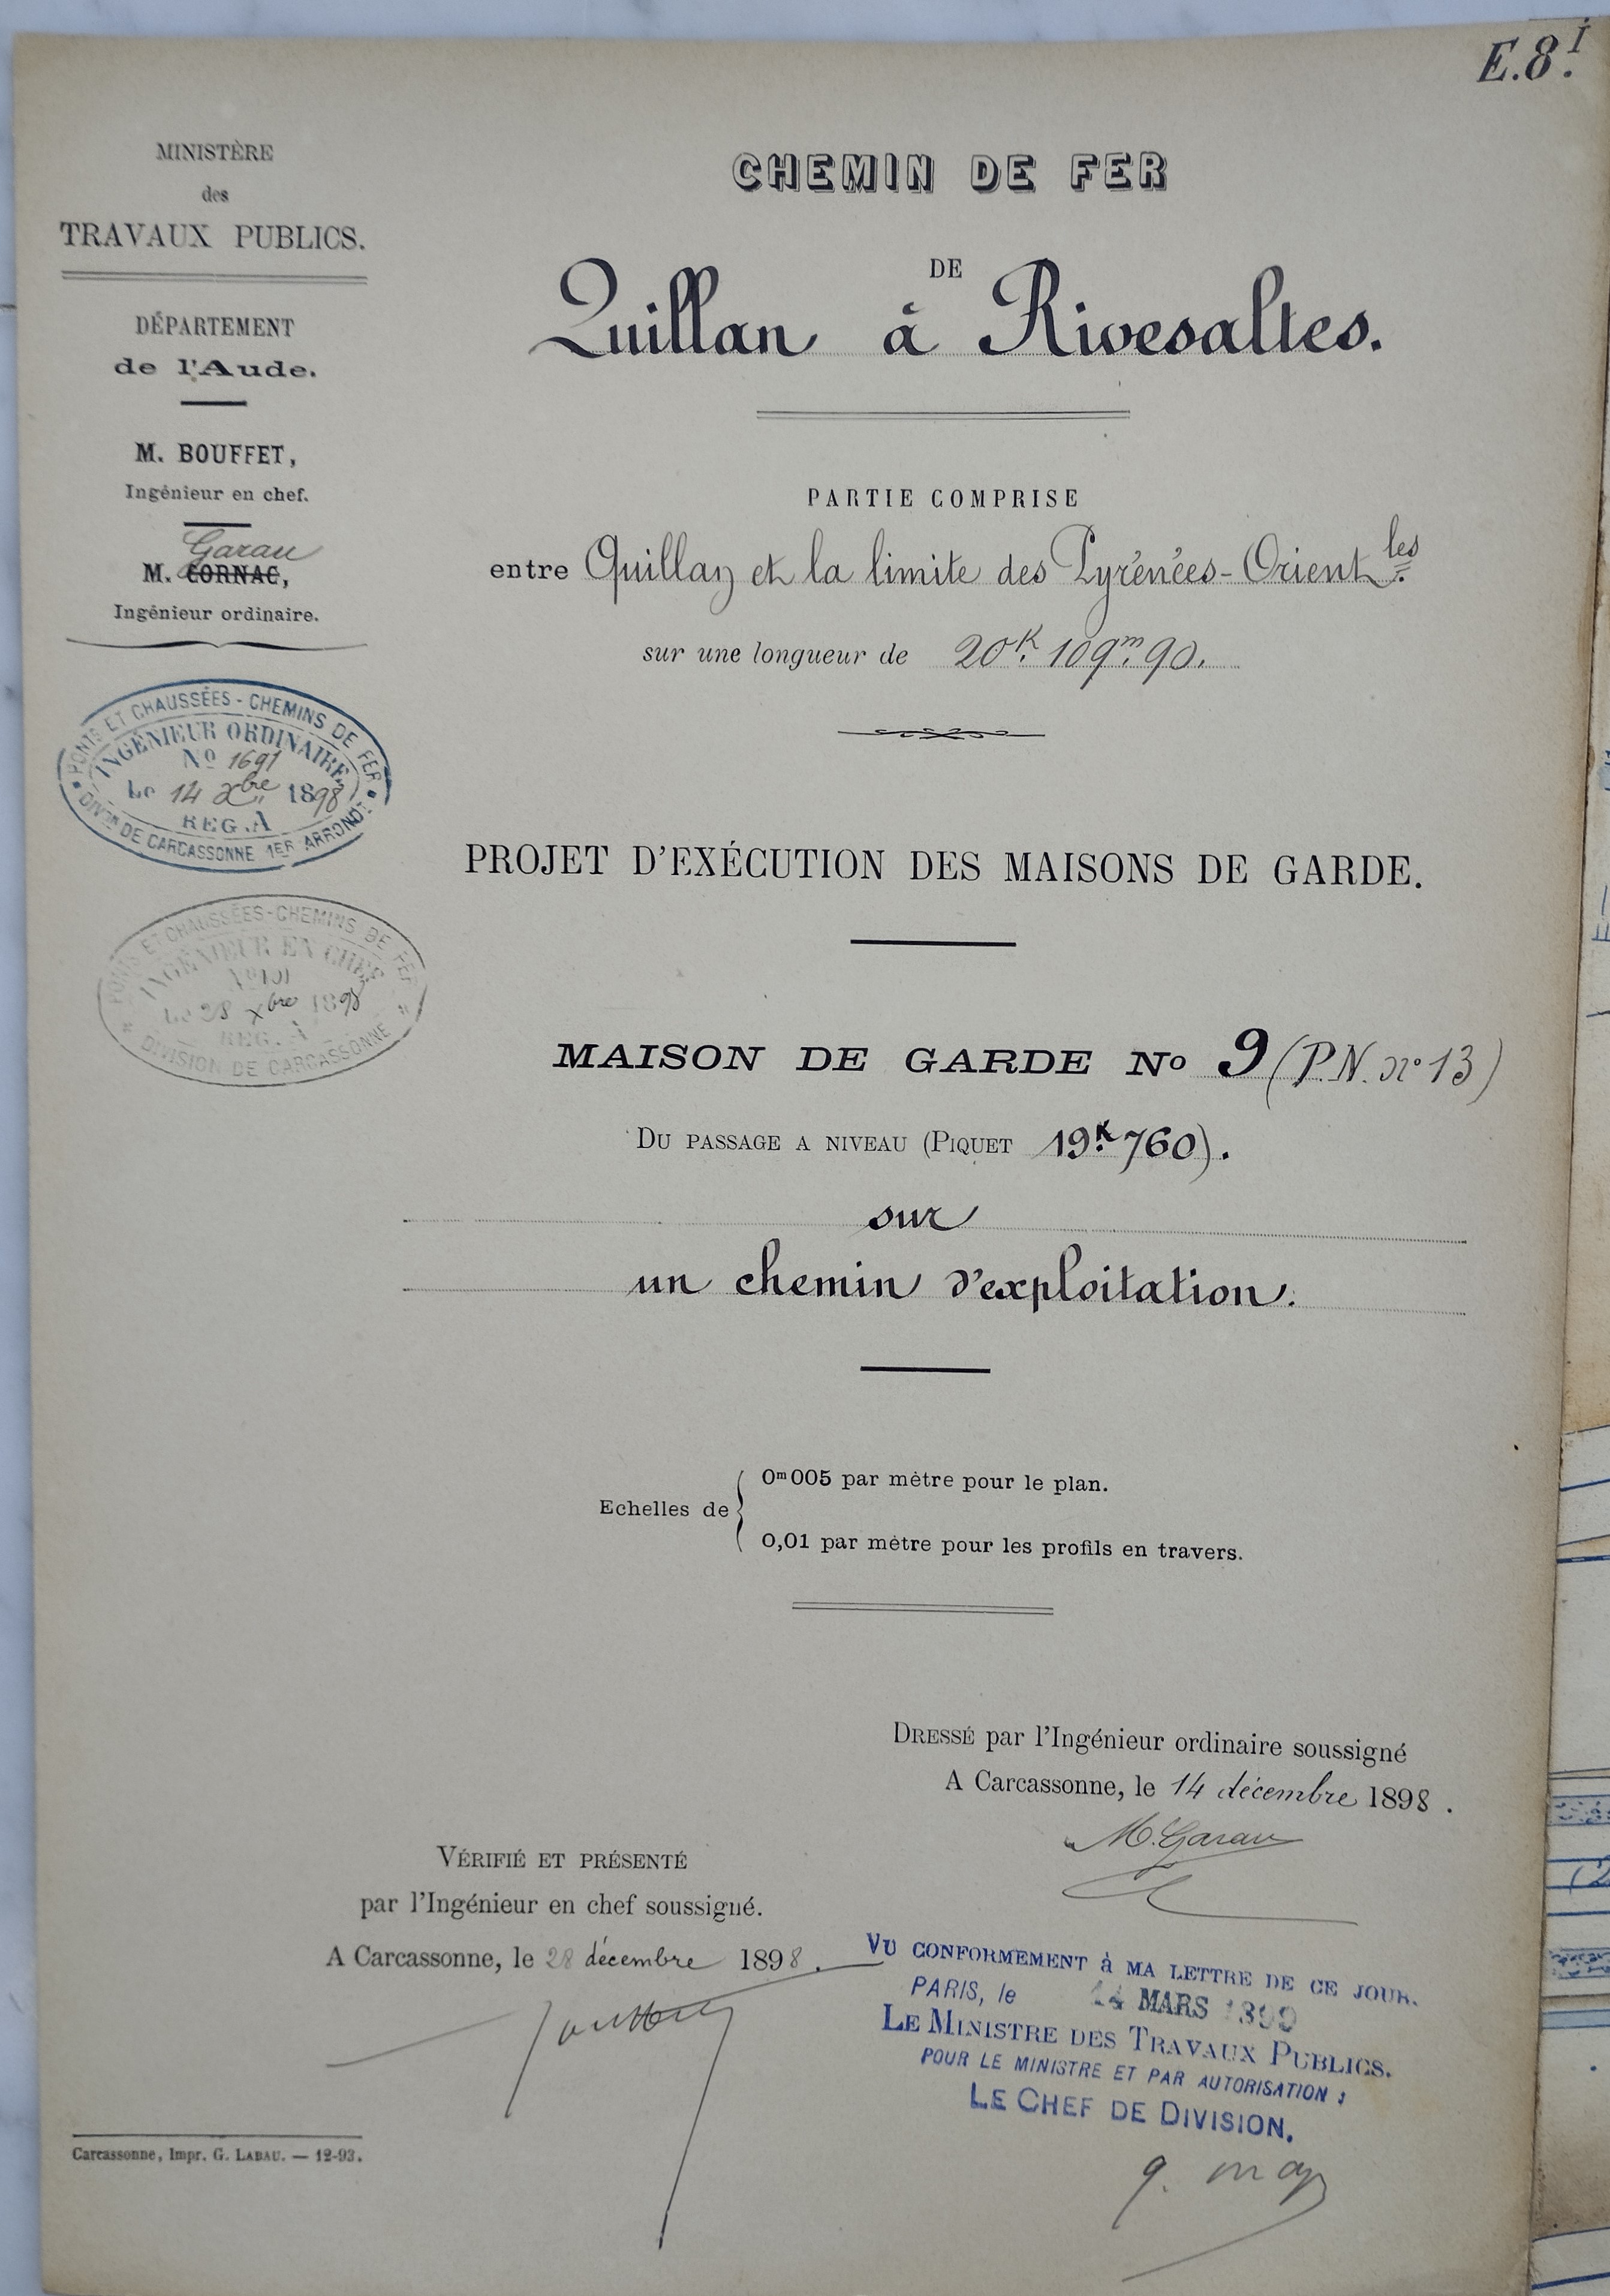 E.8.I
MINISTÈRE
des
TRAVAUX PUBLICS.
DÉPARTEMENT
de l'Aude.
M. BOUFFET,
Ingénieur en chef.
Garau
M. CORNAC,
Ingénieur ordinaire.
PONTS ET CHAUSSÉES - CHEMINS DE FER
INGÉNIEUR ORDINAIRE
No 1691
Le 14 Xbre 1898
REG. A
DIVon DE CARCASSONNE 1ER ARRONDt
PONTS ET CHAUSSÉES - CHEMINS DE FER
INGÉNIEUR EN CHEF
Le 28 Xbre 1898
REG. A
DIVISION DE CARCASSONNE
CHEMIN DE FER
DE
Quillan à Rivesaltes.
PARTIE COMPRISE
entre Quillan et la limite des Pyrénées-Orientles
sur une longueur de 20K. 109m. 90.
PROJET D'EXÉCUTION DES MAISONS DE GARDE.
MAISON DE GARDE No 9 (P.N. no 13)
DU PASSAGE A NIVEAU (PIQUET 19K.760).
sur
un chemin d'exploitation.
Echelles de
0m005 par mètre pour le plan.
0,01 par mètre pour les profils en travers.
DRESSÉ par l'Ingénieur ordinaire soussigné
A Carcassonne, le 14 décembre 1898.
M. Garau
VÉRIFIÉ ET PRÉSENTÉ
par l'Ingénieur en chef soussigné.
A Carcassonne, le 28 décembre 1898.
VU CONFORMEMENT à MA LETTRE DE CE JOUR.
PARIS, le 14 MARS 1899
LE MINISTRE DES TRAVAUX PUBLICS.
POUR LE MINISTRE ET PAR AUTORISATION :
LE CHEF DE DIVISION.
Carcassonne, Impr. G. LABAU. — 12-93.